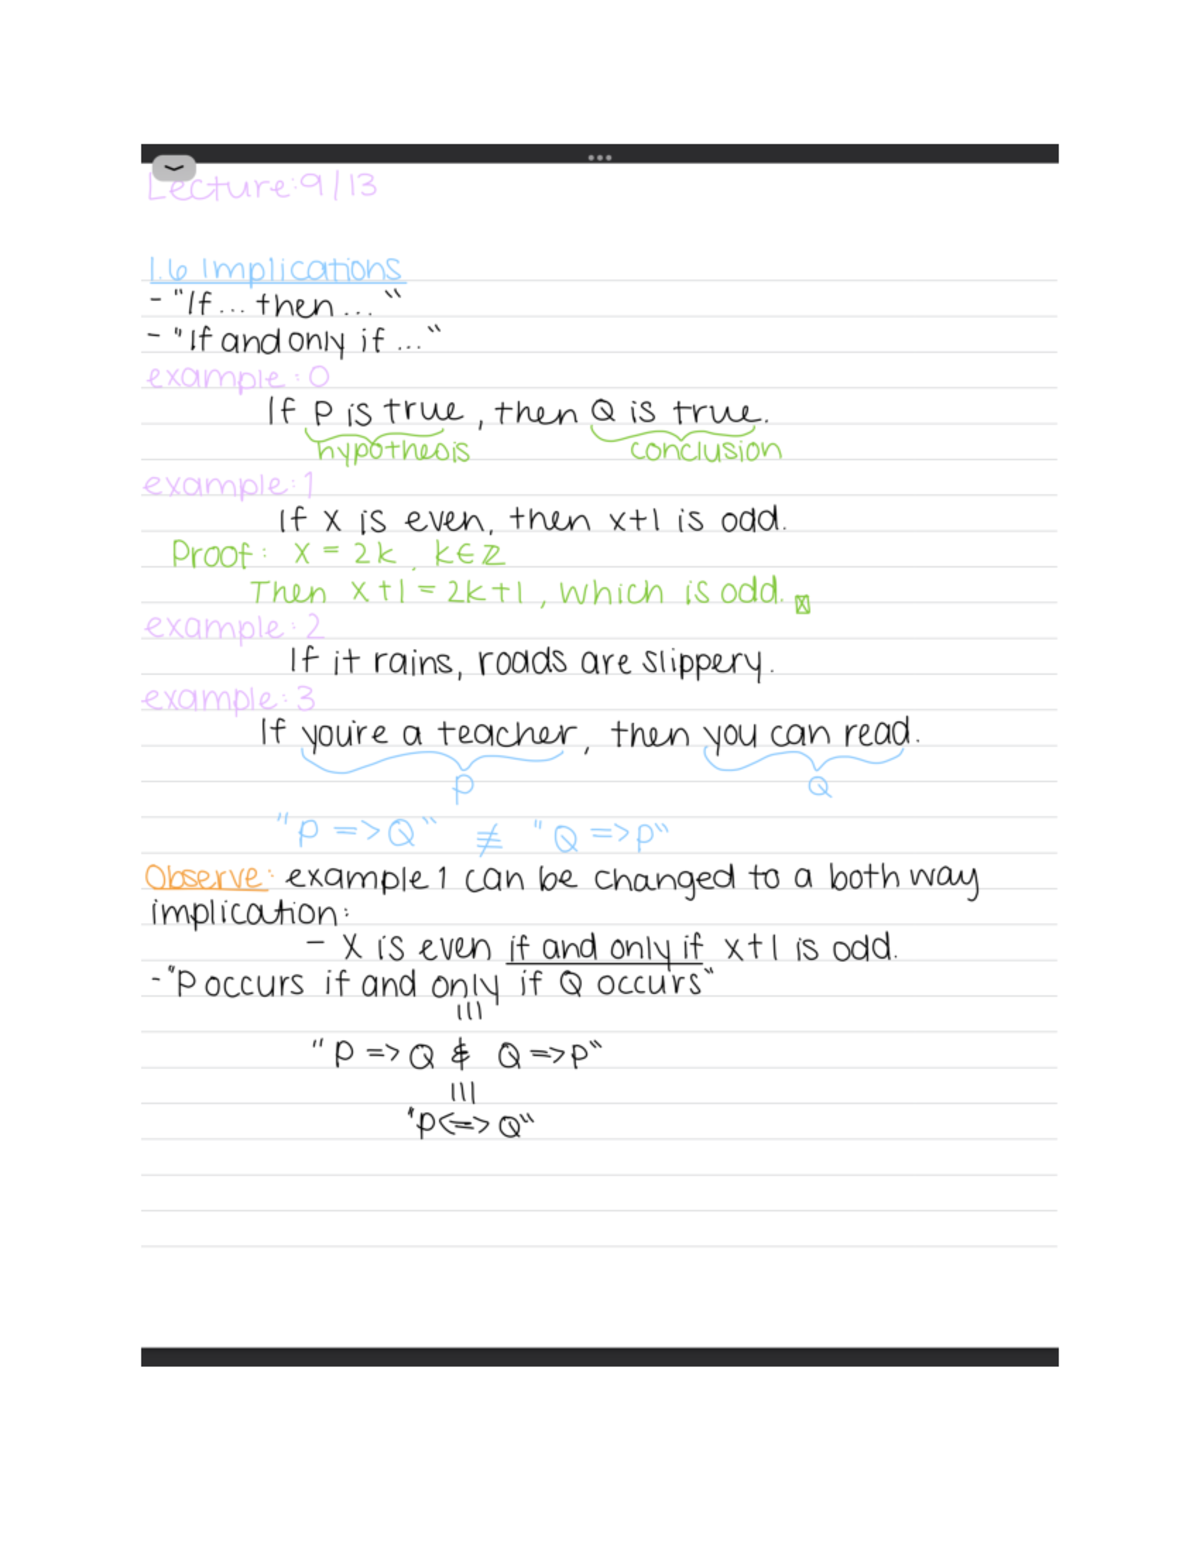 Lecture: 9/13
1.6 Implications
- "If ... then ... "
- "If and only if ... "
example: 0
If P is true, then Q is true.
hypothesis conclusion
example: 1
If x is even, then x+1 is odd.
Proof: x = 2k, k∈ℤ
Then x+1 = 2k+1, which is odd. ☒
example: 2
If it rains, roads are slippery.
example: 3
If you're a teacher, then you can read.
P Q
"P => Q" ≢ "Q => P"
Observe: example 1 can be changed to a both way
implication:
- X is even if and only if x+1 is odd.
- "P occurs if and only if Q occurs"
|||
"P => Q & Q => P"
|||
"P <=> Q"